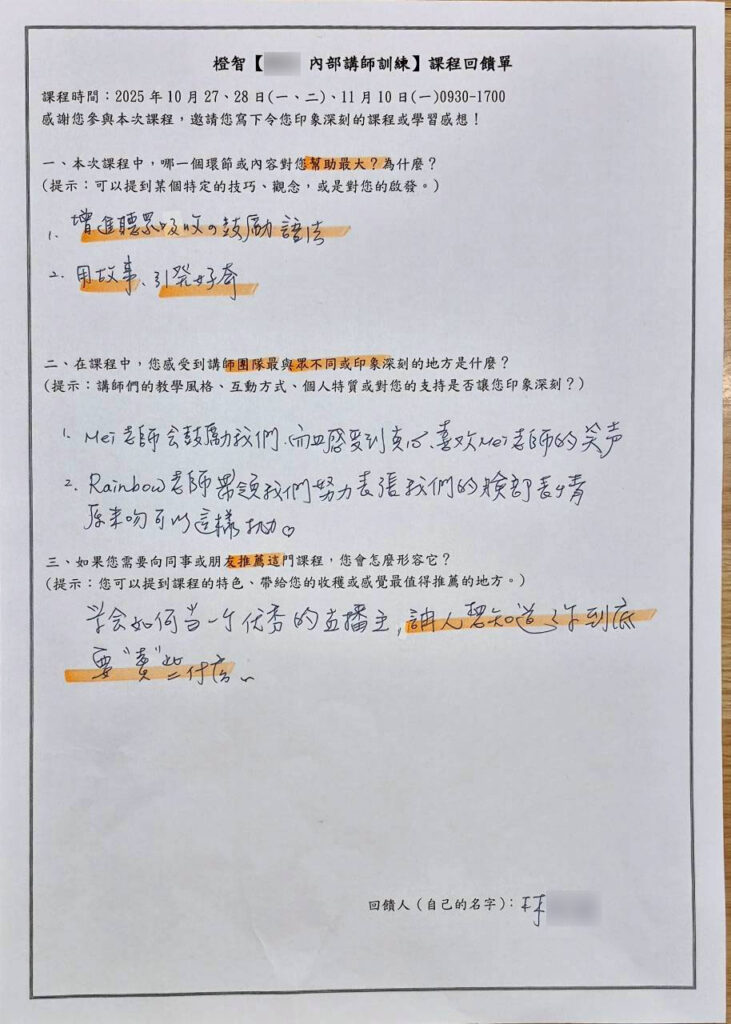 橙智【 內部講師訓練】課程回饋單
課程時間：2025 年 10 月 27、28 日(一、二)、11 月 10 日(一)0930-1700
感謝您參與本次課程，邀請您寫下令您印象深刻的課程或學習感想！
一、本次課程中，哪一個環節或內容對您幫助最大？為什麼？
(提示：可以提到某個特定的技巧、觀念，或是對您的啟發。)
1. 增進聽眾吸收の鼓勵語法
2. 用故事、引發好奇
二、在課程中，您感受到講師團隊最與眾不同或印象深刻的地方是什麼？
(提示：講師們的教學風格、互動方式、個人特質或對您的支持是否讓您印象深刻？)
1. Mei 老師会鼓勵我們，而且感受到真心、喜欢Mei老師的笑声
2. Rainbow老師帶領我們努力表張我們的臉部表情
原來吻可以這樣
三、如果您需要向同事或朋友推薦這門課程，您會怎麼形容它？
(提示：您可以提到課程的特色、帶給您的收穫或感覺最值得推薦的地方。)
学会如何当一个优秀的直播主，讓人想知道你到底
要"賣"些什么
回饋人（自己的名字）：林